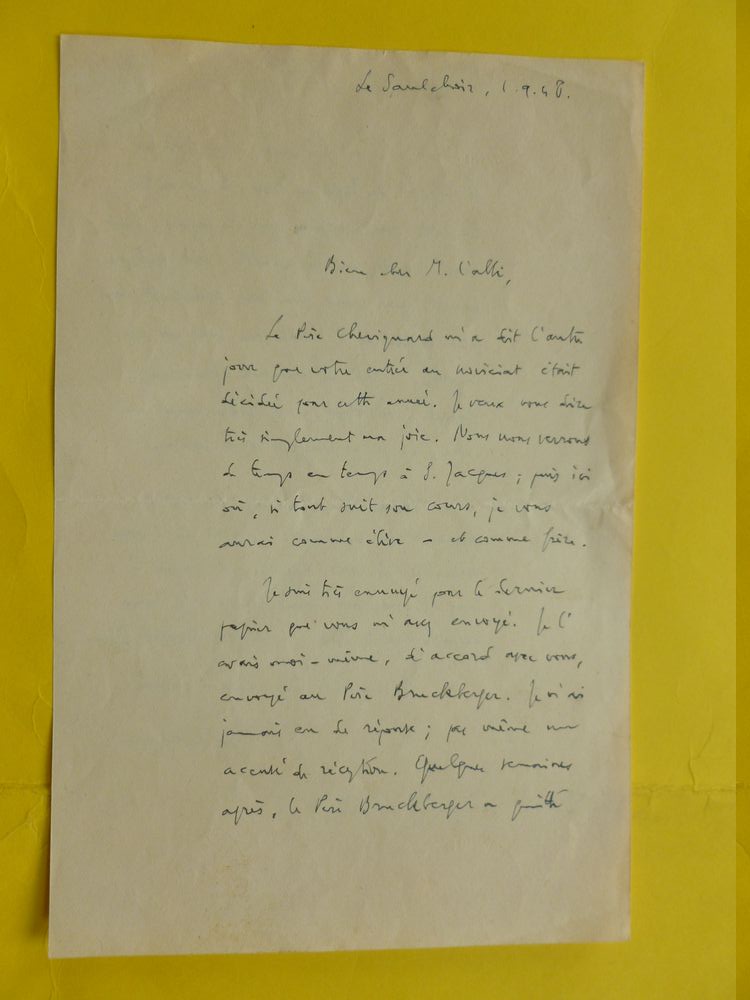 Le Saulchoir, 1.9.48.
Bien cher M. l'abbé,
Le Père Chevignard m'a dit l'autre
jour que votre entrée au noviciat était
décidée pour cette année. Je veux vous dire
très simplement ma joie. Nous nous verrons
de temps en temps à S. Jacques ; puis ici
où, si tout suit son cours, je vous
aurai comme élève – et comme frère.
Je suis très ennuyé pour le dernier
papier que vous m'avez envoyé. Je l'
avais moi-même, d'accord avec vous,
envoyé au Père Bruckberger. Je n'ai
jamais eu de réponse ; pas même un
accusé de réception. Quelques semaines
après, le Père Bruckberger a quitté